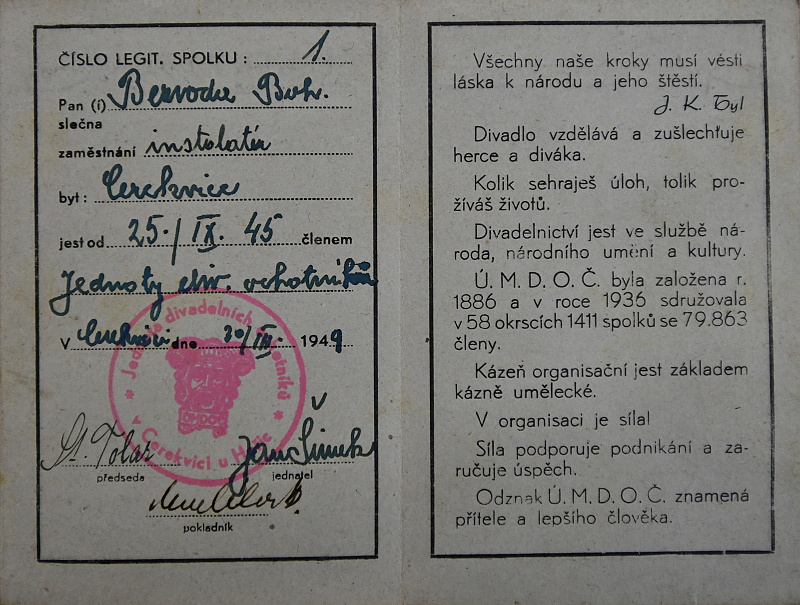 ČÍSLO LEGIT. SPOLKU : 1.
Pan (í) Bezvoda Boh.
slečna
zaměstnání instalatér
byt : Cerekvice
jest od 25./IX. 45 členem
Jednoty div. ochotníků
V Cerekvici dne 20/III. 1949
Jednota divadelních ochotníků
v Cerekvici u Hořic
St. Tolar
předseda
Jan Šimek
jednatel
pokladník
Všechny naše kroky musí vésti
láska k národu a jeho štěstí.
J. K. Tyl
Divadlo vzdělává a zušlechťuje
herce a diváka.
Kolik sehraješ úloh, tolik pro-
žíváš životů.
Divadelnictví jest ve službě ná-
roda, národního umění a kultury.
Ú. M. D. O. Č. byla založena r.
1886 a v roce 1936 sdružovala
v 58 okrscích 1411 spolků se 79.863
členy.
Kázeň organisační jest základem
kázně umělecké.
V organisaci je síla!
Síla podporuje podnikání a za-
ručuje úspěch.
Odznak Ú. M. D. O. Č. znamená
přítele a lepšího člověka.